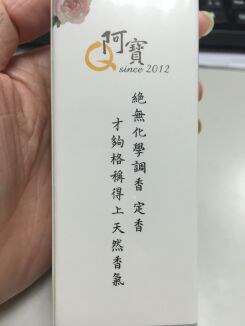 阿寶
since 2012
絕無化學調香 定香
才夠格稱得上天然香氣